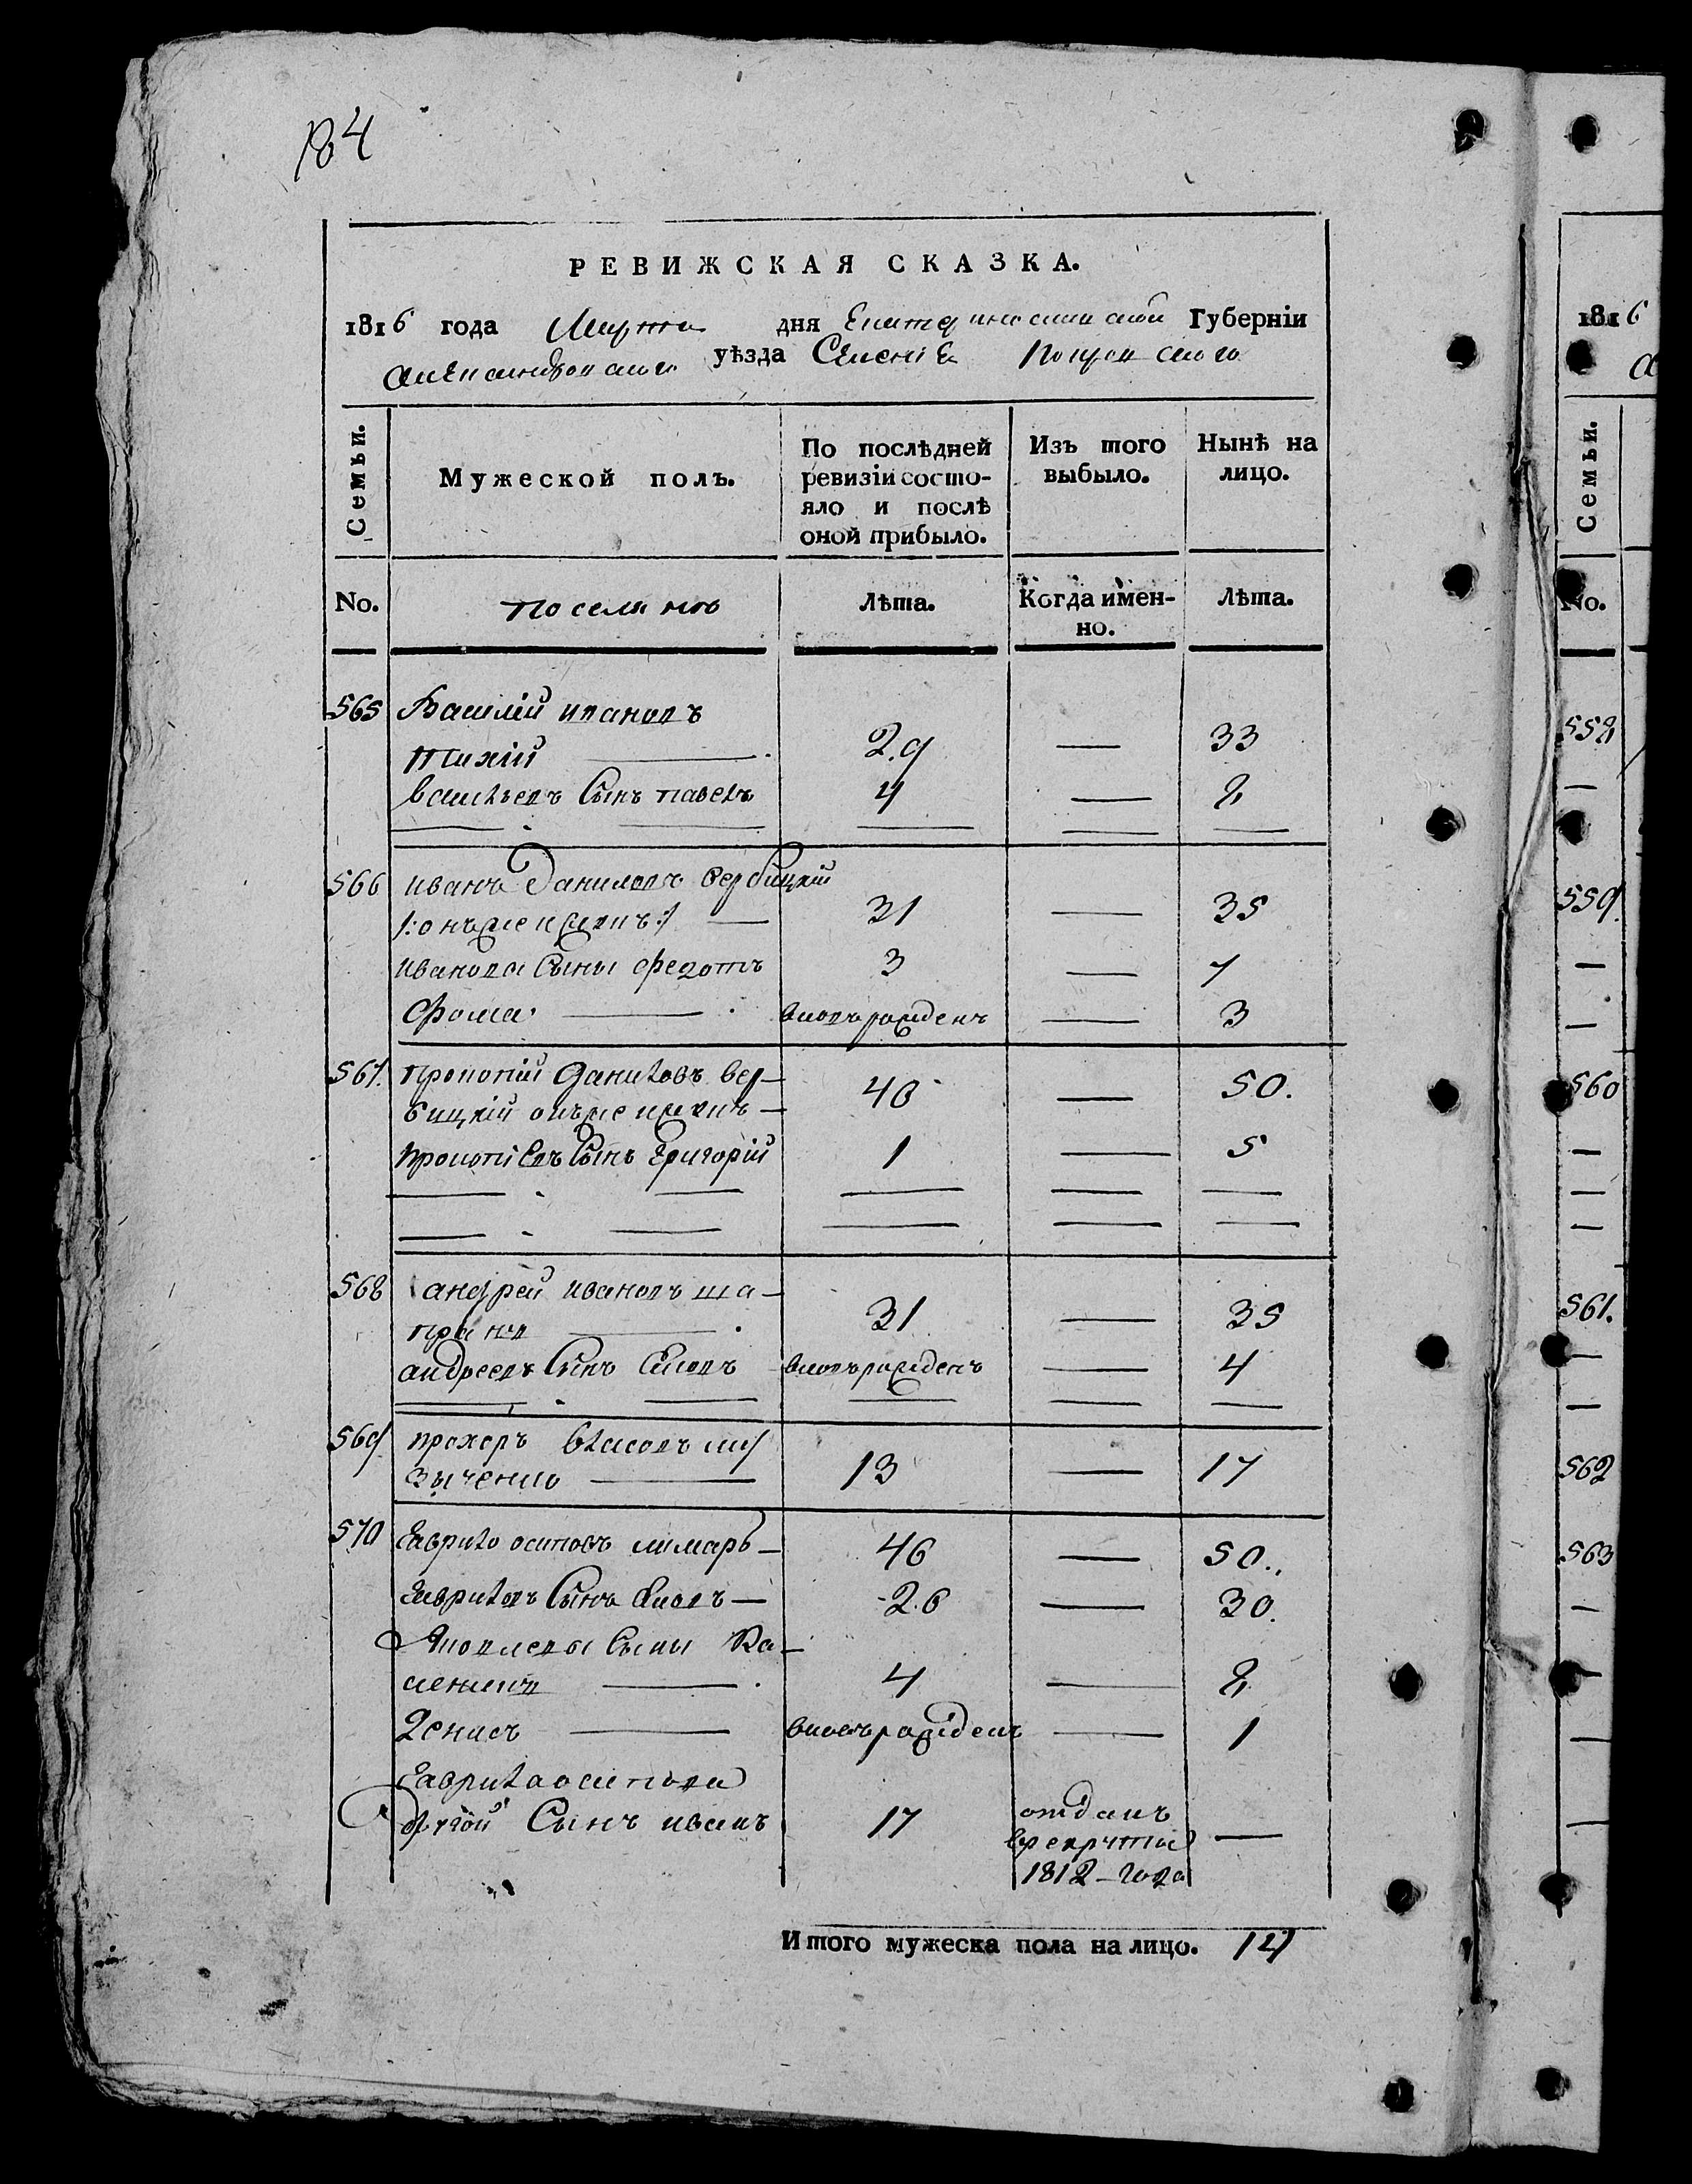 184
РЕВИЖСКАЯ СКАЗКА.
1816 года Марта дня Екатеринославской Губерніи
Александровскаго уѣзда Селенія Покровскаго
Семьи.
Мужеской полъ.
По послѣдней ревизіи состо-
яло и послѣ
оной прибыло.
Изъ того
выбыло.
Нынѣ на
лицо.
No.
Поселянъ
Лѣта.
Когда имен-
но.
Лѣта.
565 Василій Ивановъ
Тихій 29 — 33
Васильевъ Сынъ Павелъ 4 — 8
566 Иванъ Даниловъ Вербицкій
31 — 35
Иванова Сыны Федотъ 3 — 7
Фома вновь рожденъ — 3
567. Прокопій Даниловъ Вер-
бицкій 46 — 50.
Прокопіевъ Сынъ Григорій 1 — 5
568 Андрей Ивановъ Ша-
31 — 35
Андреевъ Сынъ вновь рожденъ — 4
569 Прохоръ Власовъ
13 — 17
570 Гаврило Осиповъ Лимарь 46 — 50.
Гавриловъ Сынъ Яковъ — 26 — 30.
Яковлевы Сыны
4 — 8
Денисъ вновь рожденъ — 1
Гаврила Осипова
другой Сынъ Иванъ 17 отданъ
в рекруты —
1812 года
Итого мужеска пола на лицо. 14
1816
Семьи.
No.
558
559.
560
561.
562
563